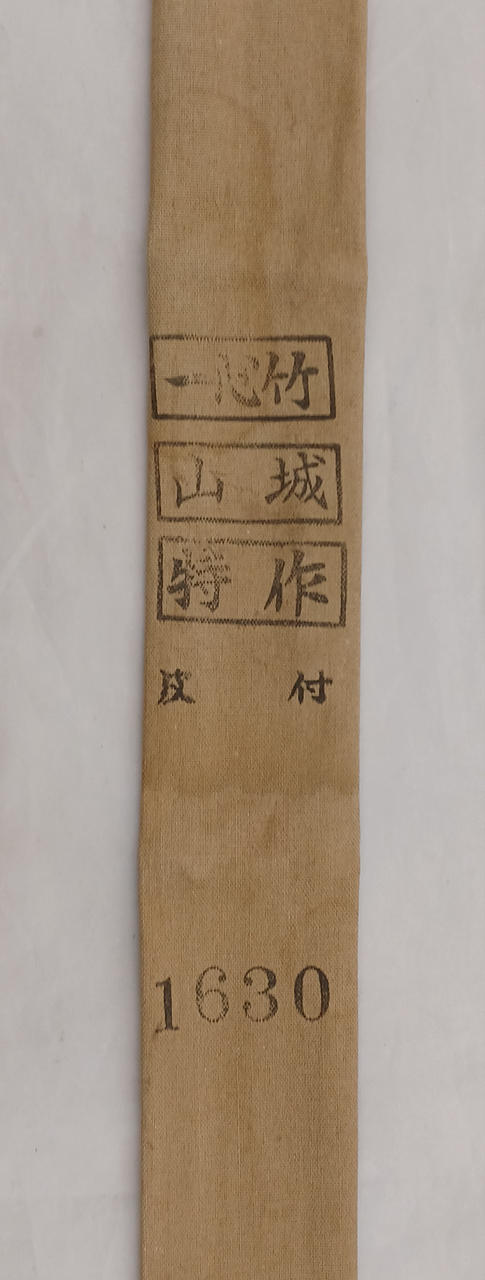 一心竹
山城
特作
皮付
1630